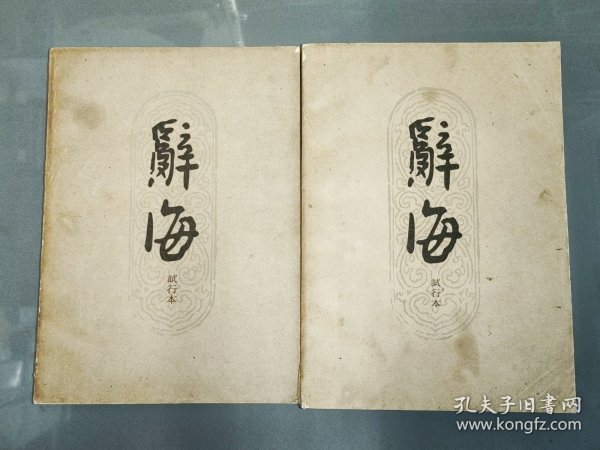 辭海
試行本
辭海
試行本
孔夫子旧書网
www.kongfz.com